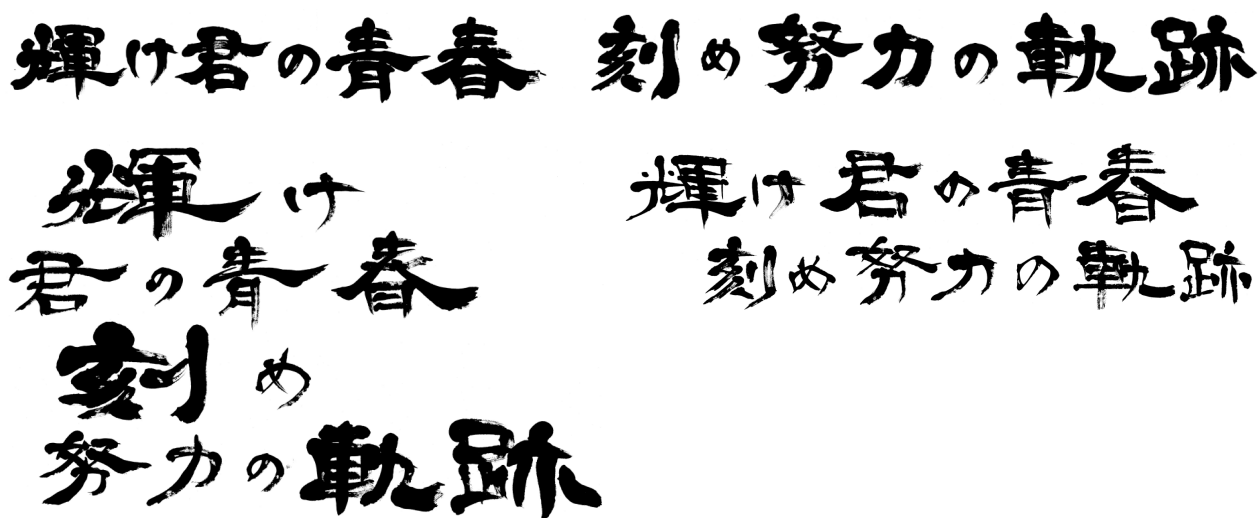 輝け君の青春 刻め努力の軌跡
輝け
君の青春
刻め
努力の軌跡
輝け君の青春
刻め努力の軌跡